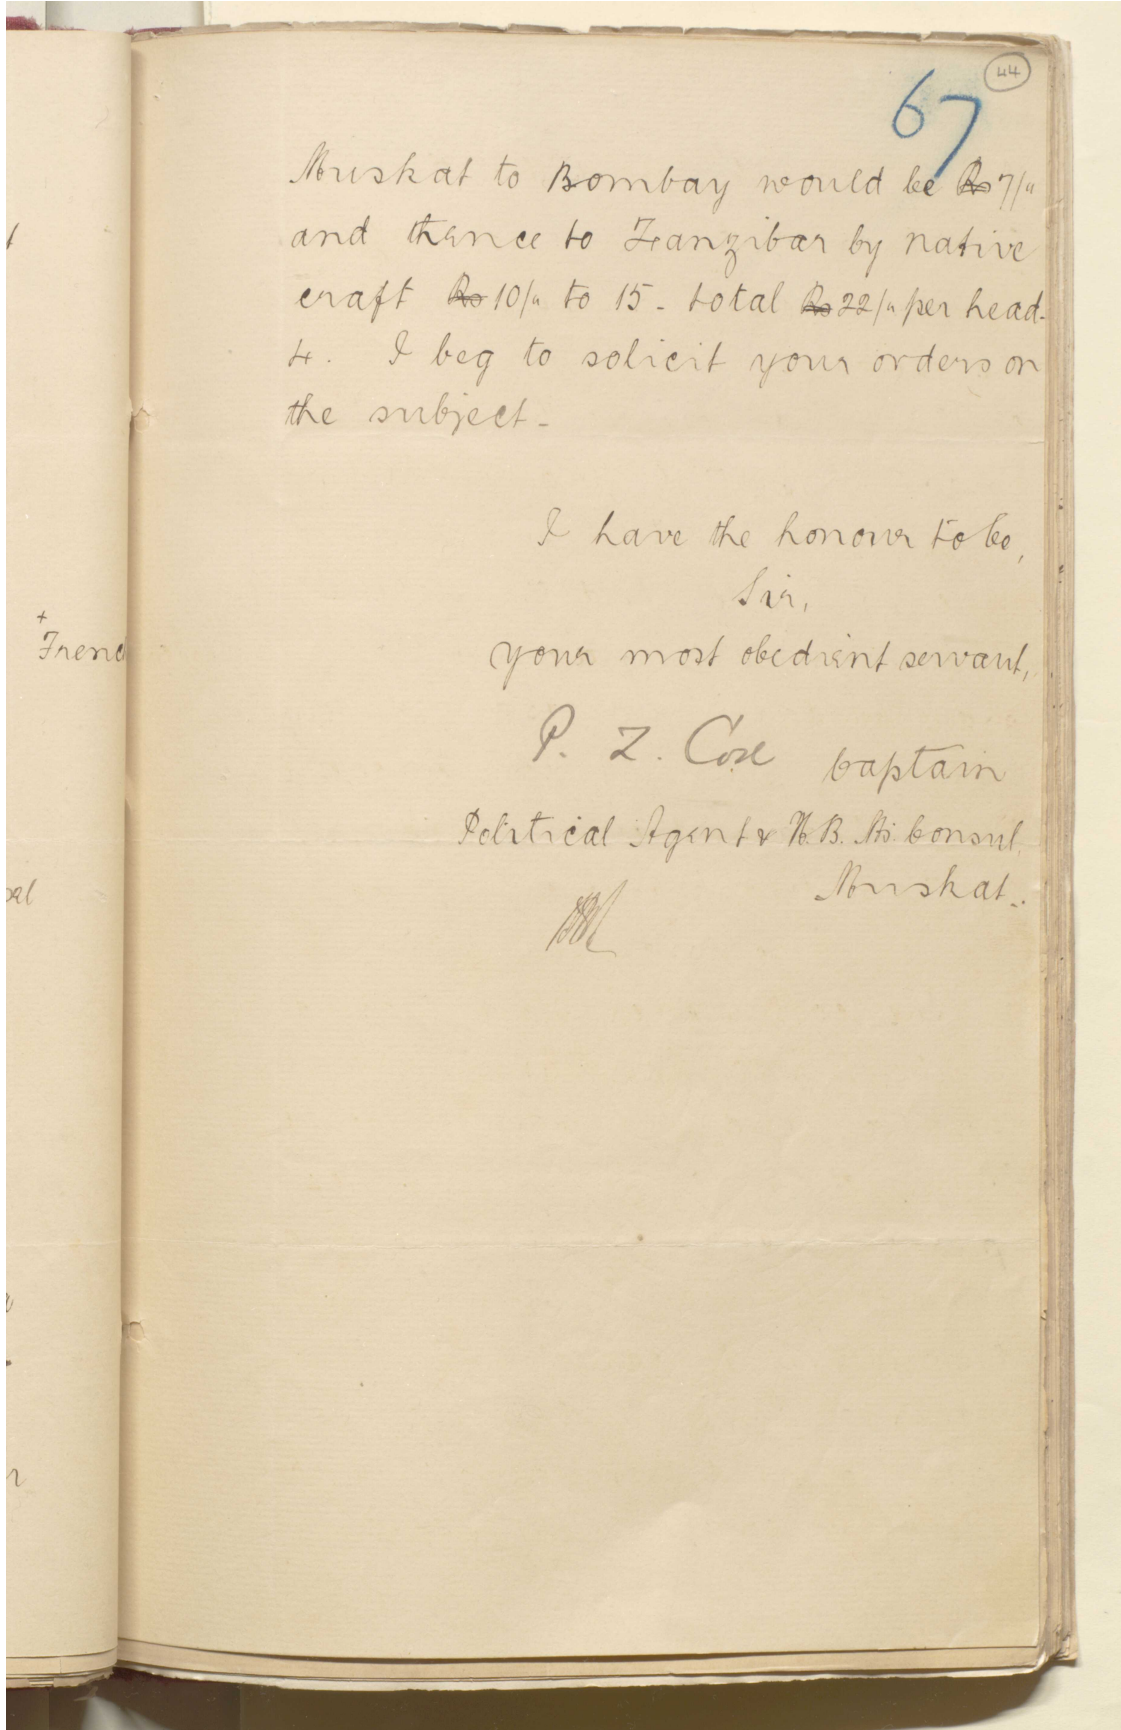 44
67
Muskat to Bombay would be Rs 7/"
and thence to Zanzibar by native
craft Rs 10/" to 15 - total Rs 22/" per head -
4. I beg to solicit your orders on
the subject -
I have the honour to be,
Sir,
your most obedient servant,
P. Z. Cox Captain
Political Agent & H. B. M's. Consul,
Muskat.
+
Frenc